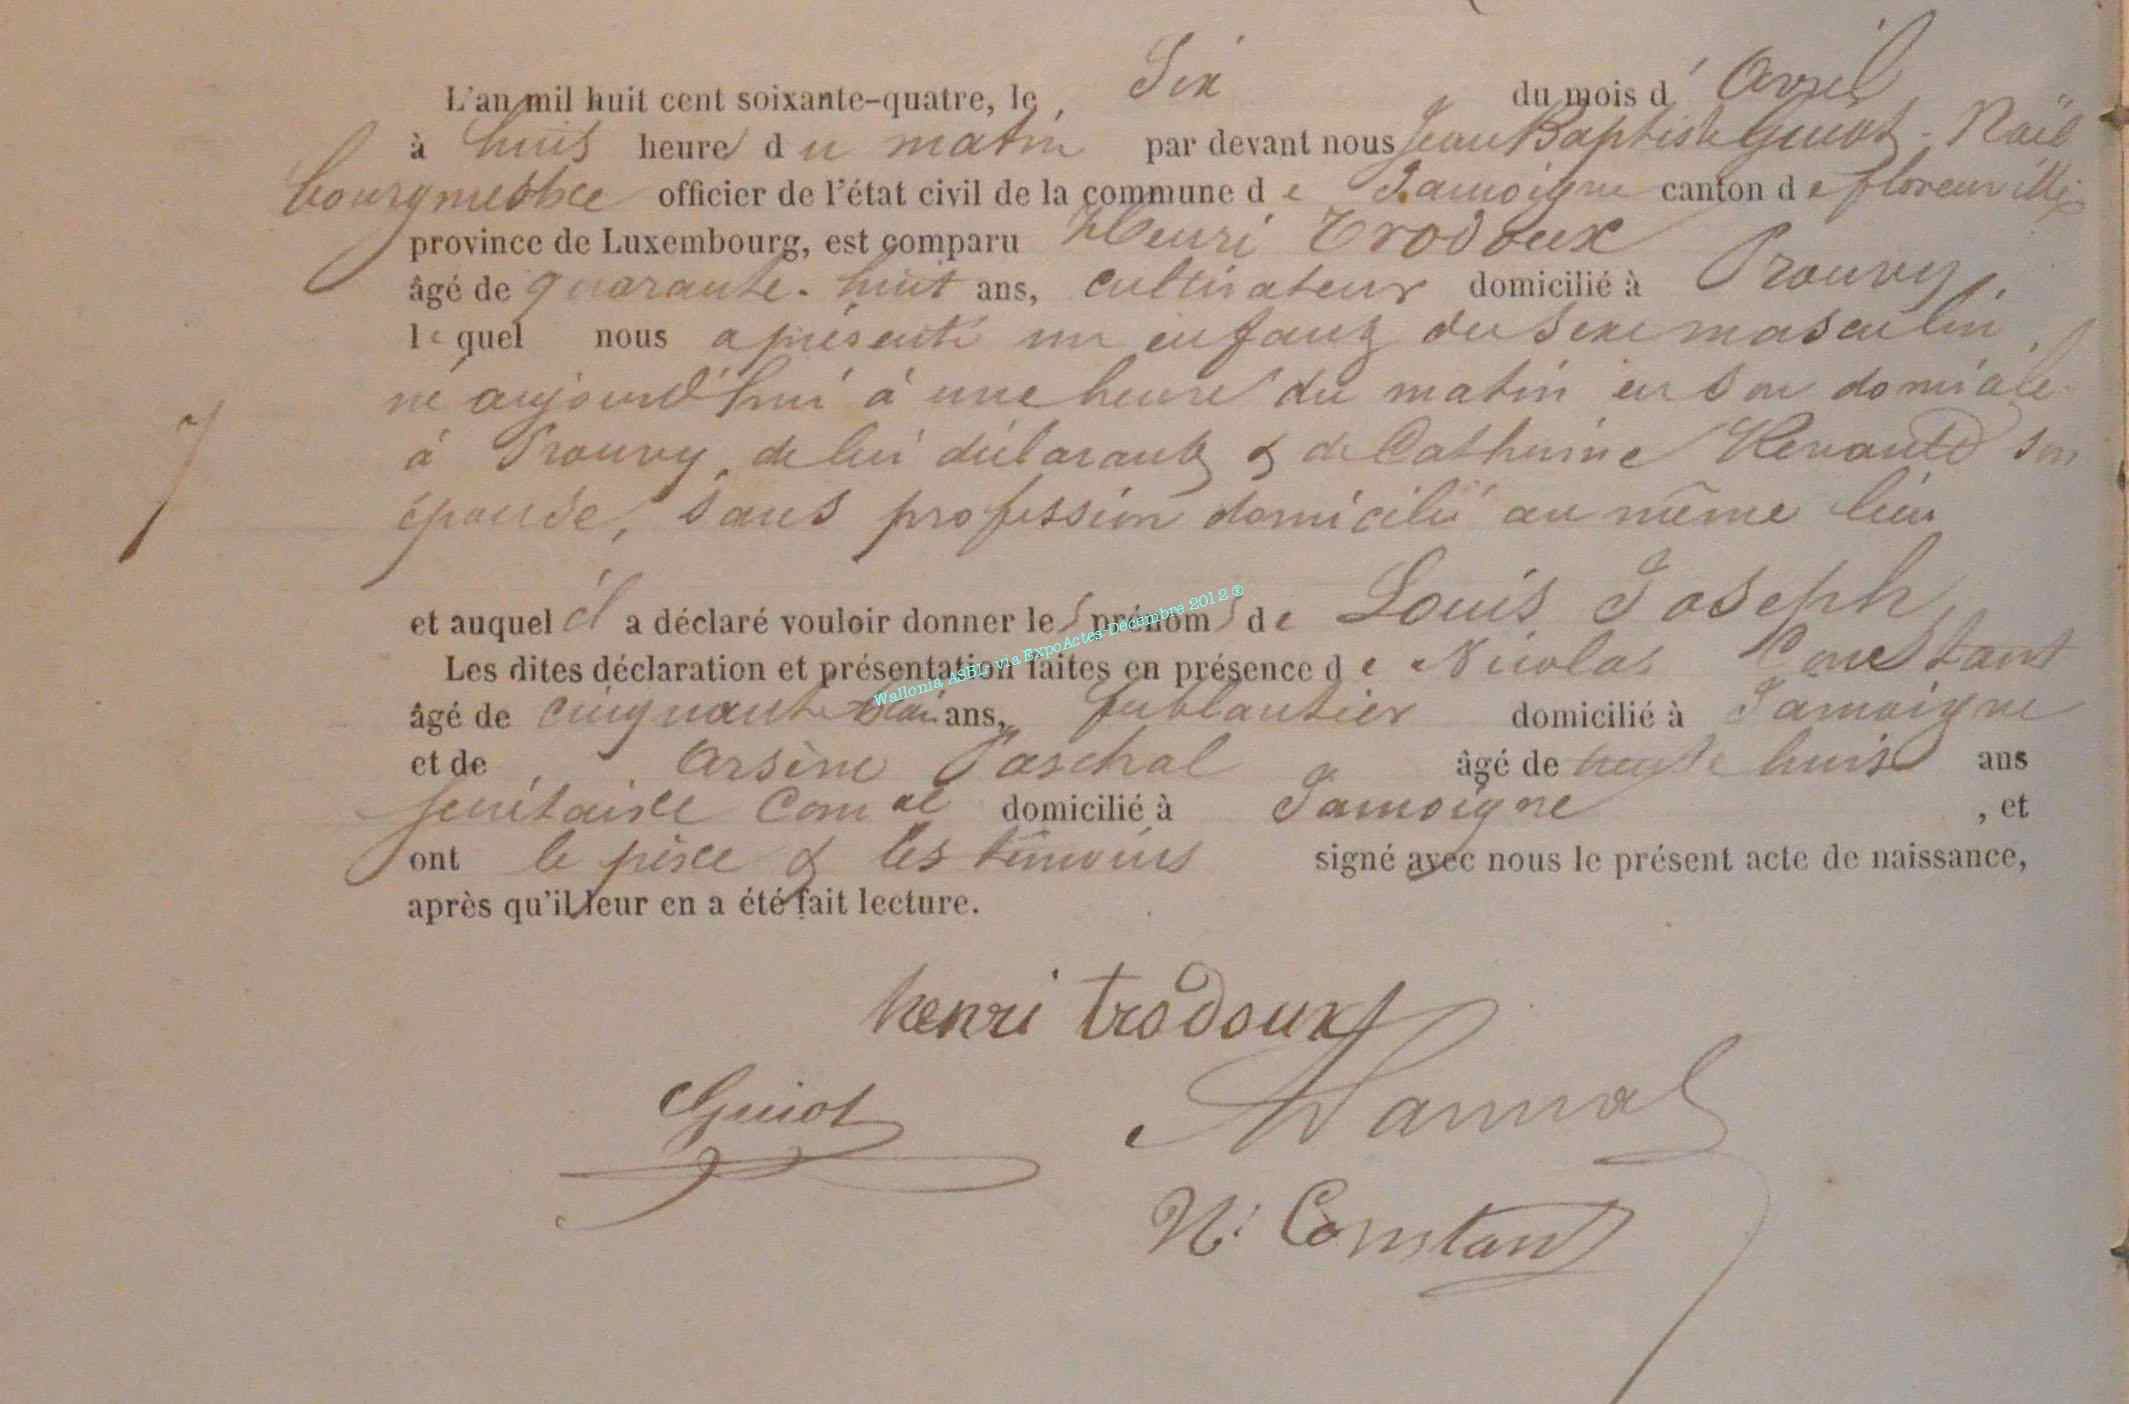 L'an mil huit cent soixante-quatre, le Six du mois d' Avril
à huit heures du matin par devant nous Jean Baptiste Guiot - Noël
bourgmestre officier de l'état civil de la commune de Jamoigne canton de florenville
province de Luxembourg, est comparu Henri Trodoux
âgé de quarante-huit ans, cultivateur domicilié à Prouvy
lequel nous a présenté un enfant du sexe masculin
né aujourd'hui à une heure du matin en son domicile
à Prouvy, de lui déclarant & de Catherine son
épouse, sans profession domicilié au même lieu
et auquel il a déclaré vouloir donner les prénoms de Louis Joseph
Les dites déclaration et présentation faites en présence de Nicolas Constant
âgé de cinquante ans, ferblantier domicilié à Jamoigne
et de Arsène Paschal âgé de trente huit ans
secrétaire Comal domicilié à Jamoigne , et
ont le père & les témoins signé avec nous le présent acte de naissance,
après qu'il leur en a été fait lecture.
henri trodoux
Guiot
N. Constant
Wallonia ASBL via ExpoActes Décembre 2012 ®